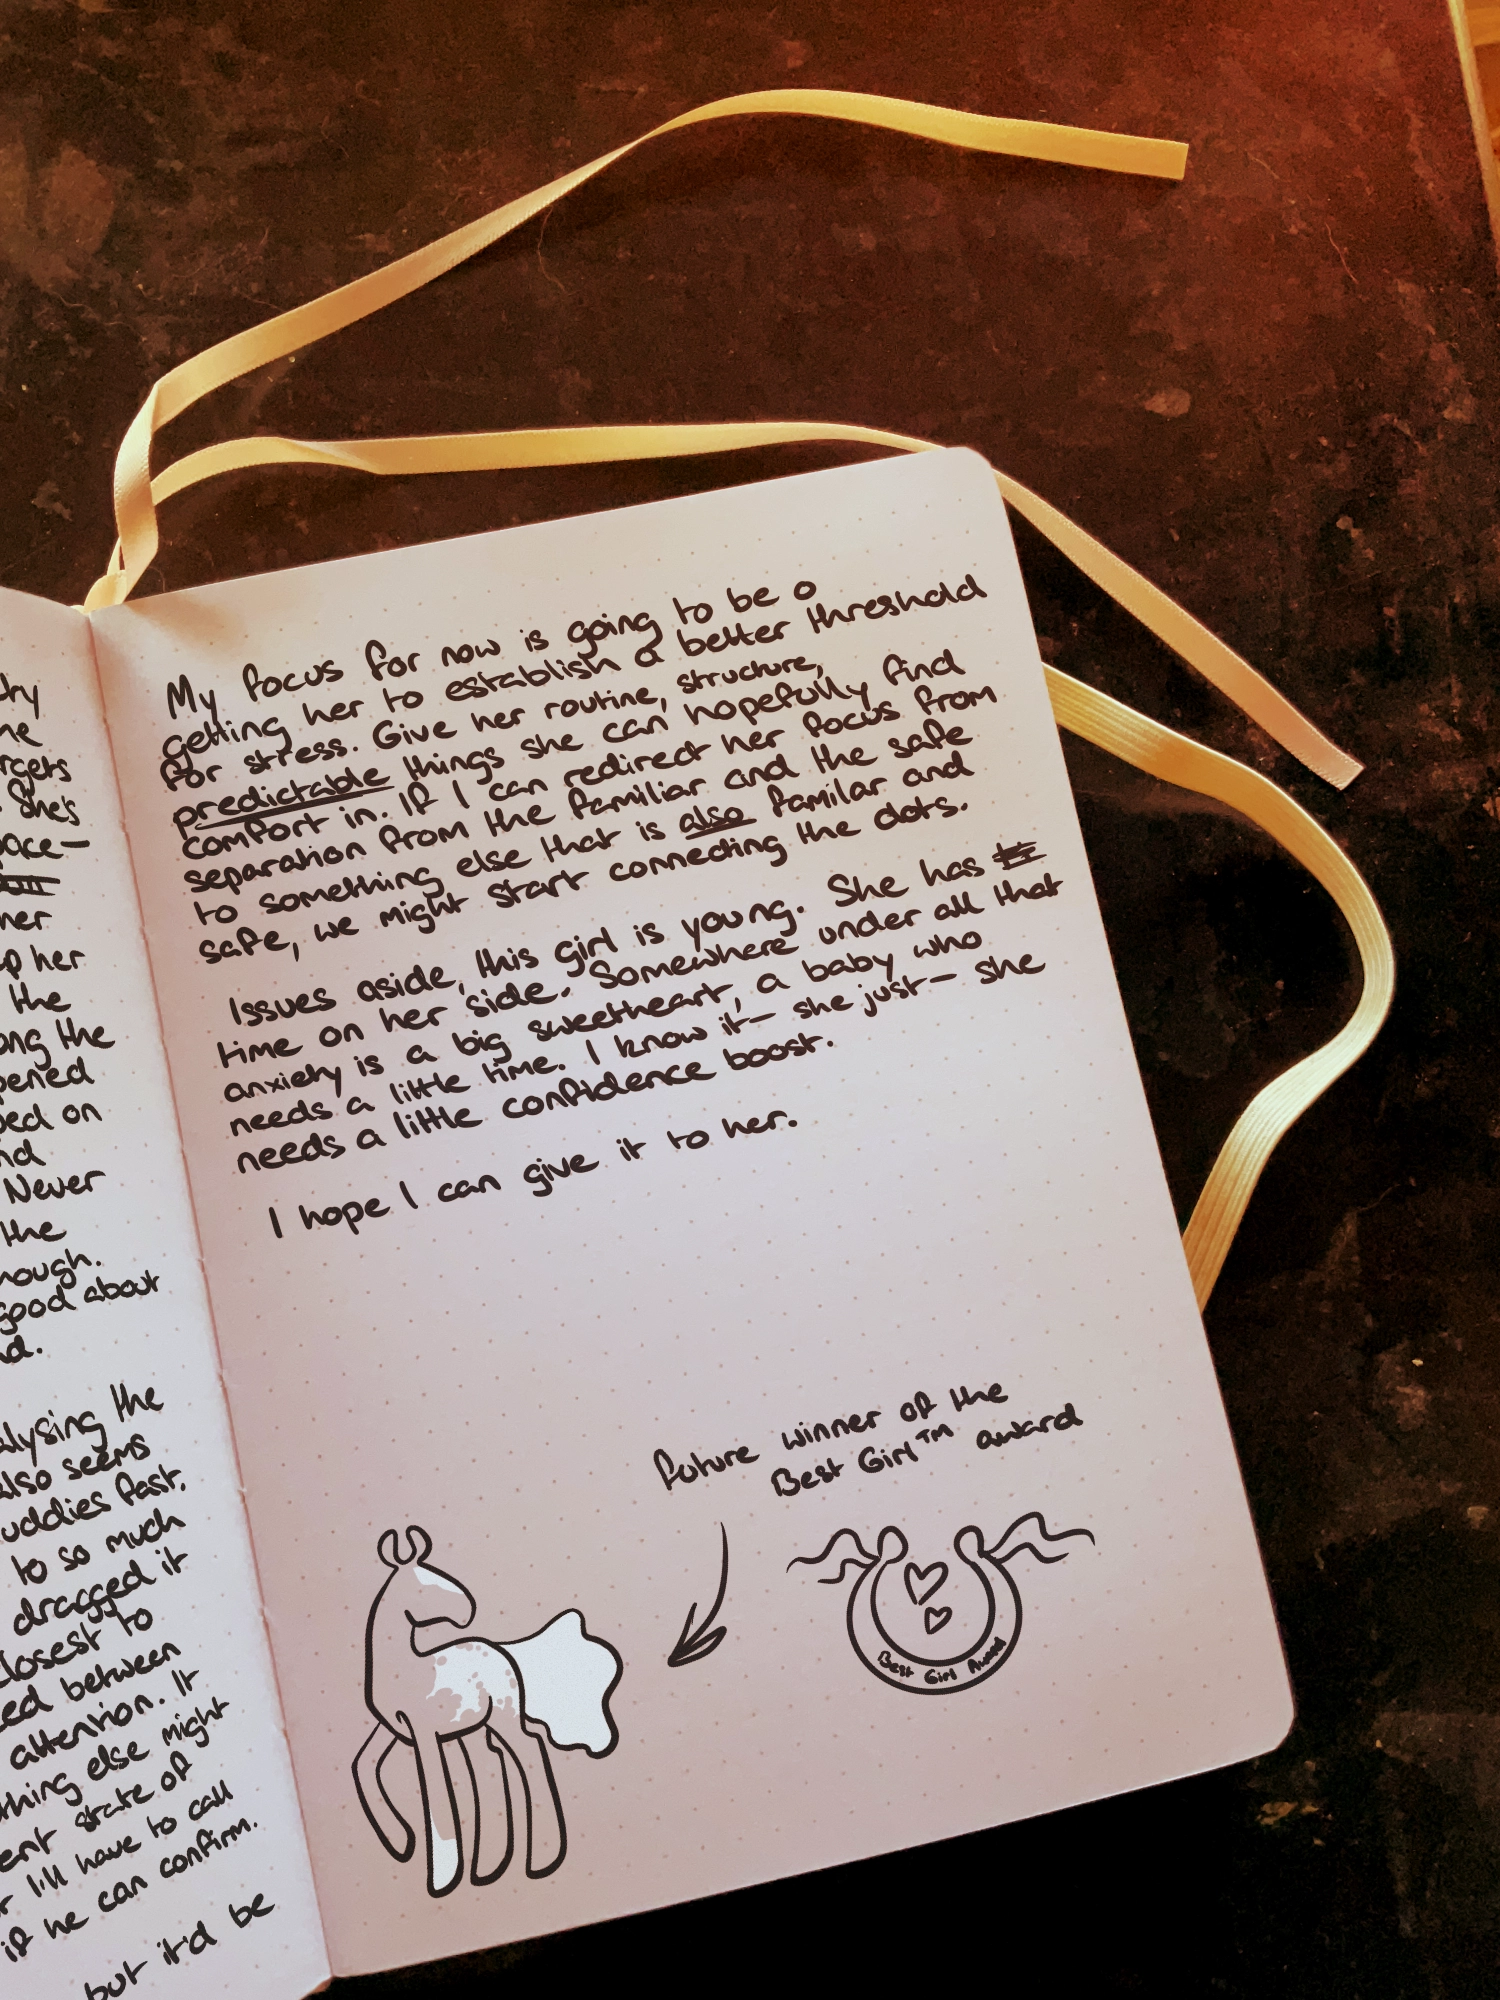 try
ne
rgets
She's
pace—
her
p her
the
ong the
pened
ped on
nd
Never
the
nough.
good about
nd.
alysing the
also seems
uddies fast.
to so much
dragged it
closest to
ed between
attention. It
thing else might
ent state of
r I'll have to call
if he can confirm.
but it'd be
My focus for now is going to be o
getting her to establish a better threshold
for stress. Give her routine, structure,
predictable things she can hopefully find
comfort in. If I can redirect her focus from
separation from the familiar and the safe
to something else that is also familar and
safe, we might start connecting the dots.
Issues aside, this girl is young. She has
time on her side. Somewhere under all that
anxiety is a big sweetheart, a baby who
needs a little time. I know it— she just— she
needs a little confidence boost.
I hope I can give it to her.
future winner of the
Best Girl™ award
Best Girl Award